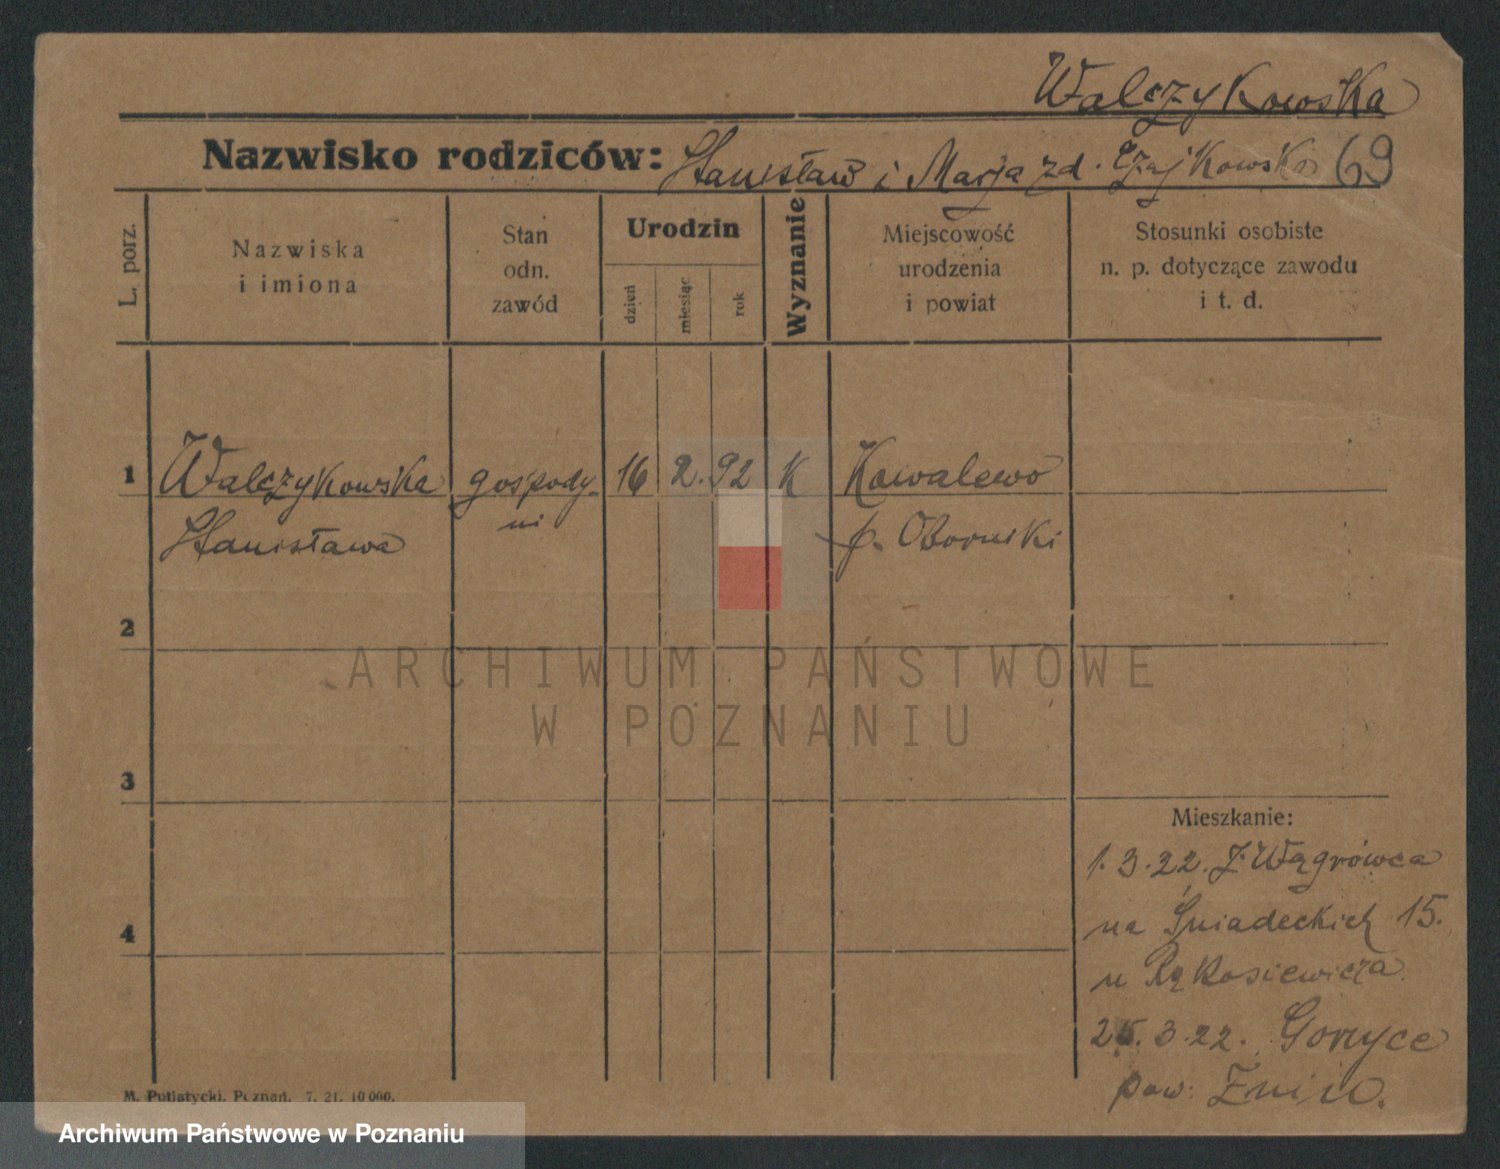 Walczykowska
Nazwisko rodziców: Stanisław i Marja zd. Czajkowska 69
L. porz.
Nazwiska
i imiona
Stan
odn.
zawód
Urodzin
dzień
miesiąc
rok
Wyznanie
Miejscowość
urodzenia
i powiat
Stosunki osobiste
n. p. dotyczące zawodu
i t. d.
1 Walczykowska gospody- 16 2. 92 K Kowalewo
Stanisława ni p. Oborniki
2
ARCHIWUM PAŃSTWOWE
W POZNANIU
3
Mieszkanie:
1. 3. 22. z Wągrówca
na Śniadeckich 15.
u Rąkosiewicza
4
25. 3. 22. Gorzyce
pow. Żnin.
M. Putiatycki, Poznań. 7. 21. 10 000.
Archiwum Państwowe w Poznaniu